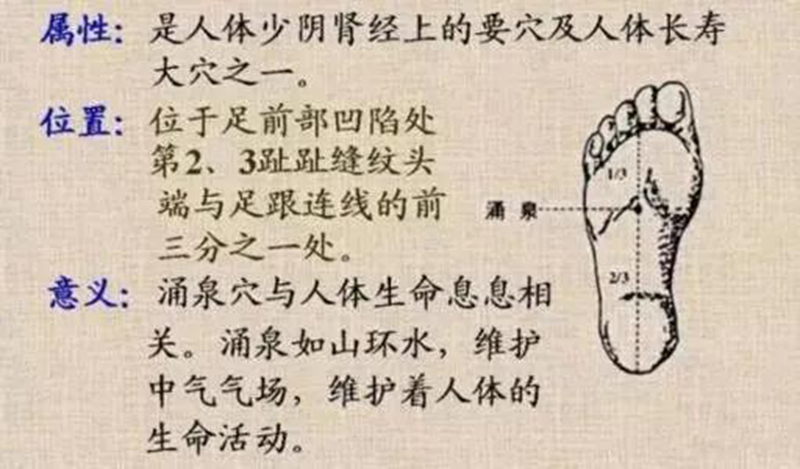 属性：是人体少阴肾经上的要穴及人体长寿
大穴之一。
位置：位于足前部凹陷处
第2、3趾趾缝纹头
端与足跟连线的前
三分之一处。
意义：涌泉穴与人体生命息息相
关。涌泉如山环水，维护
中气气场，维护着人体的
生命活动。
1/3
涌泉
2/3